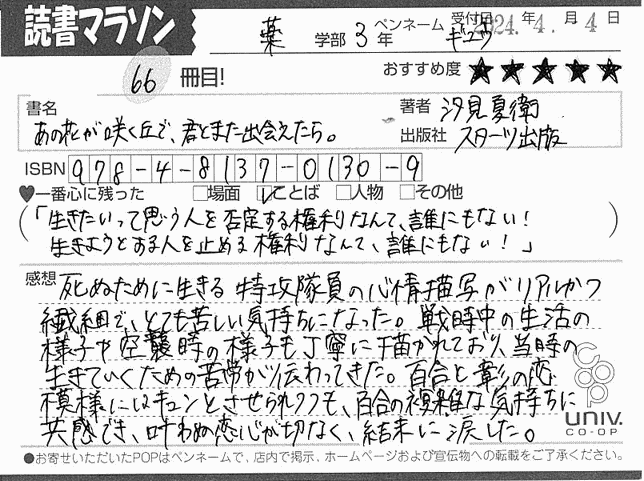 読書マラソン
薬 学部 3 年 ペンネーム ギュウ 受付日 2024年 4月 4日
66 冊目! おすすめ度 ★★★★★
書名 著者 汐見夏衛
あの花が咲く丘で、君とまた出会えたら。 出版社 スターツ出版
ISBN 978-4-8137-0130-9
♥一番心に残った □場面 ☑ことば □人物 □その他
(「生きたいって思う人を否定する権利なんて、誰にもない!
生きようとする人を止める権利なんて、誰にもない!」)
感想 死ぬために生きる特攻隊員の心情描写がリアルかつ
繊細で、とても苦しい気持ちになった。戦時中の生活の
様子や空襲時の様子も丁寧に描かれており、当時の
生きていくための苦労が伝わってきた。百合と彰の恋
模様にはキュンとさせられつつも、百合の複雑な気持ちに
共感でき、叶わぬ恋心が切なく、結末に涙した。
coop
UNIV.
CO-OP
●お寄せいただいたPOPはペンネームで、店内で掲示、ホームページおよび宣伝物への転載をご了承ください。